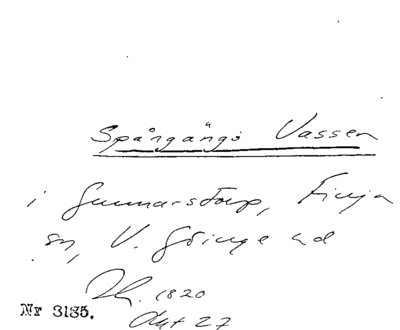 Spångångs Vassen
i Gunnarstorp, Finja
sn, V. Göinge hd
1820
Nr 3135.
Okt 27